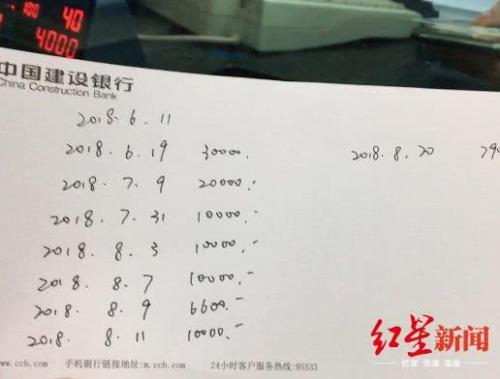 100 40
4000
中国建设银行
China Construction Bank
2018.6.11
2018.6.19 30000.-
2018.8.20
2018.7.9 20000.-
2018.7.31 10000.-
2018.8.3 10000.-
2018.8.7 10000.-
2018.8.9 6600.-
2018.8.11 10000.-
红星新闻
.ccb.com 手机银行链接地址:m.ccb.com 24小时客户服务热线:95533